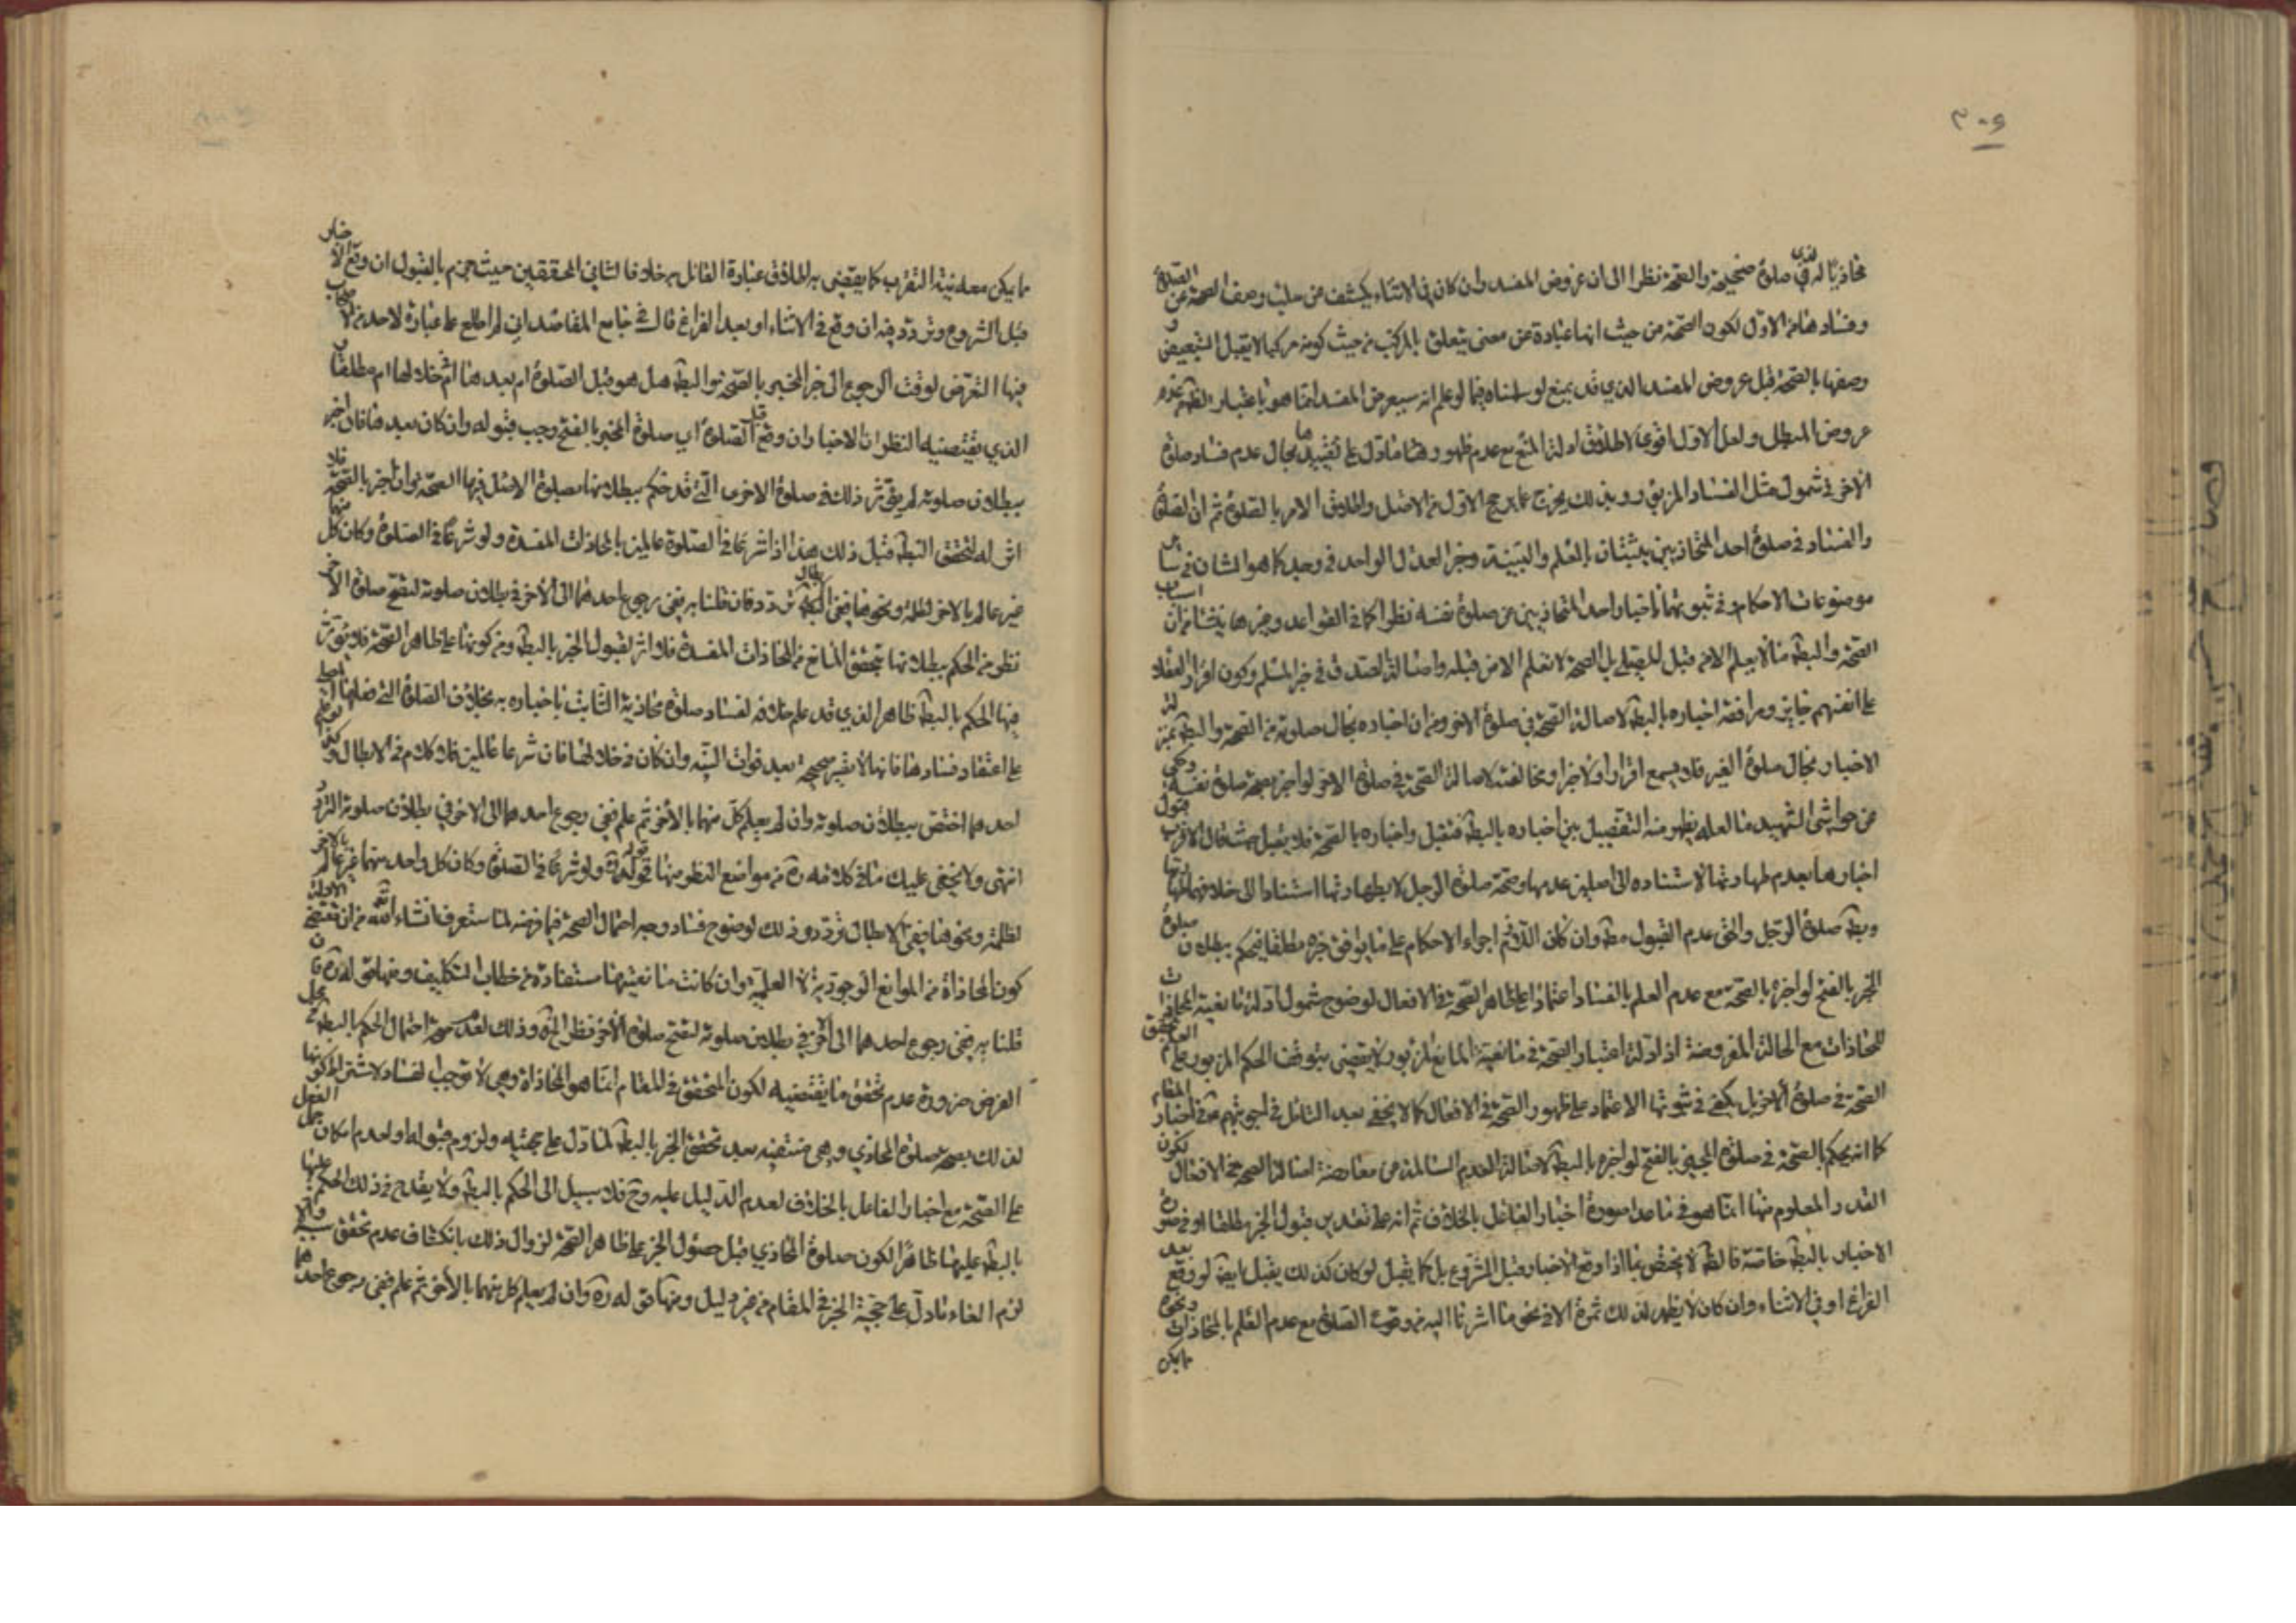 ٣٠٩
محاذيا له في صلوة صحيحة والصحة نظرا الى ان عروض المفسد وان كان في الاثناء يكشف عن سلب وصف الصحة عن
وفسادها من الاول لكون الصحة من حيث انها عبارة عن معنى يتعلق بالمركب من حيث كونه مركبا لا يقبل التبعيض و
وصفها بالصحة قبل عروض المفسد الذي قد يمنع لو سلمناه فيما لو علم انه سيعرض المفسد انما هو باعتبار عدم
عروض المبطل ولعل الاول اقوى لاطلاق ادلة المنع مع عدم ظهور ما دل على تقييدها بحال عدم فساد صلوة
الاخر في شمول مثل الفساد المزبور وبذلك يخرج عما يرجح الاول من الاصل واطلاق الامر بالصلوة ثم ان الصحة
والفساد في صلوة احد المتحاذيين يثبتان بالعلم والبينة وخبر العدل الواحد في وجه كما هو الشان في سائر
موضوعات الاحكام وفي ثبوتهما باخبار احد المتحاذيين عن صلوة نفسه نظر كما في القواعد وغيرها ينشا من ان
الصحة والبطلان مما لا يعلم الا من قبل المصلي بل الصحة لا تعلم الا من قبله واصالة الصدق في خبر المسلم وكون اقرار العقلاء
على انفسهم جايز ومرافقة اخباره بالبط لاصالة الصحة في صلوة الاخر ومن ان اخباره بحال صلوته من الصحة والبط بمنزلة
الاخبار بحال صلوة الغير فلا يسمع اقرارا ولا خبرا ومخالفته لاصالة الصحة في صلوة الاخر لو اخبر بصحة صلوة نفسه وحكي
عن حواشي الشهيد ما لعله يظهر منه التفصيل بين اخباره بالبط فتقبل واخباره بالصحة فلا يقبل حيث قال الاقرب قبول
اخبارها بعدم طهارتها لاستناده الى اصلين عدمها وصحة صلوة الرجل لا بطهارتها استنادا الى خلافهما
وبط صلوة الرجل والحق عدم القبول مط وان كان اللازم اجراء الاحكام على ما يوافق خبره مطلقا فيحكم ببطلان صلوة
المخبر بالفتح لو اخبره بالصحة مع عدم العلم بالفساد اعتمادا على ظاهر الصحة في الافعال لوضوح شمول ادلة مانعية المحاذات
للمحاذات مع الحالة المفروضة اذ ادلة اعتبار الصحة في مانعية المانع المزبور لا يقتضي بتوقف الحكم المزبور على العلم بتحقق
الصحة في صلوة الاخر بل يكفي في ثبوتها الاعتماد على ظهور الصحة في الافعال كما لا يخفى بعد التامل في اجوبتهم عن اخبار المقام
كما انه يحكم بالصحة في صلوة المخبر بالفتح لو اخبره بالبط لاصالة العدم السالمة من معارضة اصالة الصحة في الافعال لكون
القدر المعلوم منها انما هو في ما عدا صورة اخبار الفاعل بالخلاف ثم انه على تقدير قبول الخبر مطلقا او في صورة
الاخبار بالبط خاصة فالظ لا يختص بما اذا وقع الاخبار قبل الشروع بل كما يقبل لو كان كذلك يقبل ايض لو وقع بعد
الفراغ او في الاثناء وان كان لا يظهر لذلك ثمرة الا في نحو ما اشرنا اليه من وقوع الصلوة مع عدم العلم بالمحاذات ونحوه
ما يمكن
ما يمكن معه نية التقرب كما يقتضي به اطلاق عبارة القائل به خلافا لثاني المحققين حيث جزم بالقبول ان وقع الاخبار
قبل الشروع وتردد فيه ان وقع في الاثناء او بعد الفراغ قال في جامع المقاصد اني لم اطلع على عبارة لاحد من الاصحاب
فيها التعرض لوقت الرجوع الى خبر المخبر بالصحة والبط هل هو قبل الصلوة ام بعدها ام خلالها ام مطلقا و
الذي يقتضيه النظر ان الاخبار ان وقع قبل الصلوة اي صلوة المخبر بالفتح وجب قبوله وان كان بعدها فان اخبر
ببطلان صلوته لم يؤثر ذلك في صلوة الاخرى التي قد حكم ببطلانها بصلوة الاصل فيها الصحة وان اخبر بالصحة فلا
اثر له لتحقق البط قبل ذلك هذا اذا شرعا في الصلوة عالمين بالمحاذات المفسدة ولو شرعا في الصلوة وكان كل منهما
غير عالم بالاخر لظلمة ونحوها ففي ابطال الصلوة تردد فان قلنا به ففي رجوع احدهما الى الاخر في بطلان صلوته لتصح صلوة الاخر
نظر من الحكم ببطلانها بتحقق المانع من المحاذات المفسدة فلا اثر لقبول الخبر بالبط ومن كونها على ظاهر الصحة فلا يؤثر
فيها الحكم بالبط ظاهرا الذي قد علم خلافه لفساد صلوة محاذيه الثابت باخباره به بخلاف الصلوة التي فعلها
على اعتقاد فسادها فانها لا تصير صحيحة بعد فوات النية وان كان في خلالها فان شرعا عالمين فلا كلام في الابطال و
احدهما اختص ببطلان صلوته وان لم يعلم كل منهما بالاخر ثم علم ففي رجوع احدهما الى الاخر في بطلان صلوته التردد
انتهى ولا يخفى عليك ما في كلامه ره من مواضع النظر منها قوله ره ولو شرعا في الصلوة وكان كل واحد منهما غير عالم بالاخر
لظلمة ونحوها ففي الابطال تردد وذلك لوضوح فساد وجه احتمال الصحة فيما فرضه لما ستعرف انشاء الله من ان مقتضى الادلة
كون المحاذاة من الموانع الوجودية لا العلمية وان كانت مانعيتها مستفادة من خطاب التكليف ومنها قوله ره فان
قلنا به ففي رجوع احدهما الى الاخر في بطلان صلوته لتصح صلوة الاخر نظر الخ وذلك لعدم صحة احتمال الحكم بالبط في محل
الفرض ضرورة عدم تحقق ما يقتضيه لكون المتحقق في المقام انما هو المحاذاة وهي لا توجب الفساد لاشتراط كونها
لذلك بصحة صلوة المحاذي وهي منتفية بعد تحقق الخبر بالبط لما دل على حجيته ولزوم قبوله او لعدم امكان حمل الفعل
على الصحة مع اخبار الفاعل بالخلاف لعدم الدليل عليه وح فلا سبيل الى الحكم بالبط ولا يقدح في ذلك الحكم عليها
بالبط عليهما ظاهرا لكون صلوة المحاذي قبل حصول الخبر على ظاهر الصحة لزوال ذلك بانكشاف عدم تحقق سببه والا
لزم الغاء ما دل على حجية الخبر في المقام من غير دليل ومنها قوله ره وان لم يعلم كل منهما بالاخر ثم علم ففي رجوع احدهما